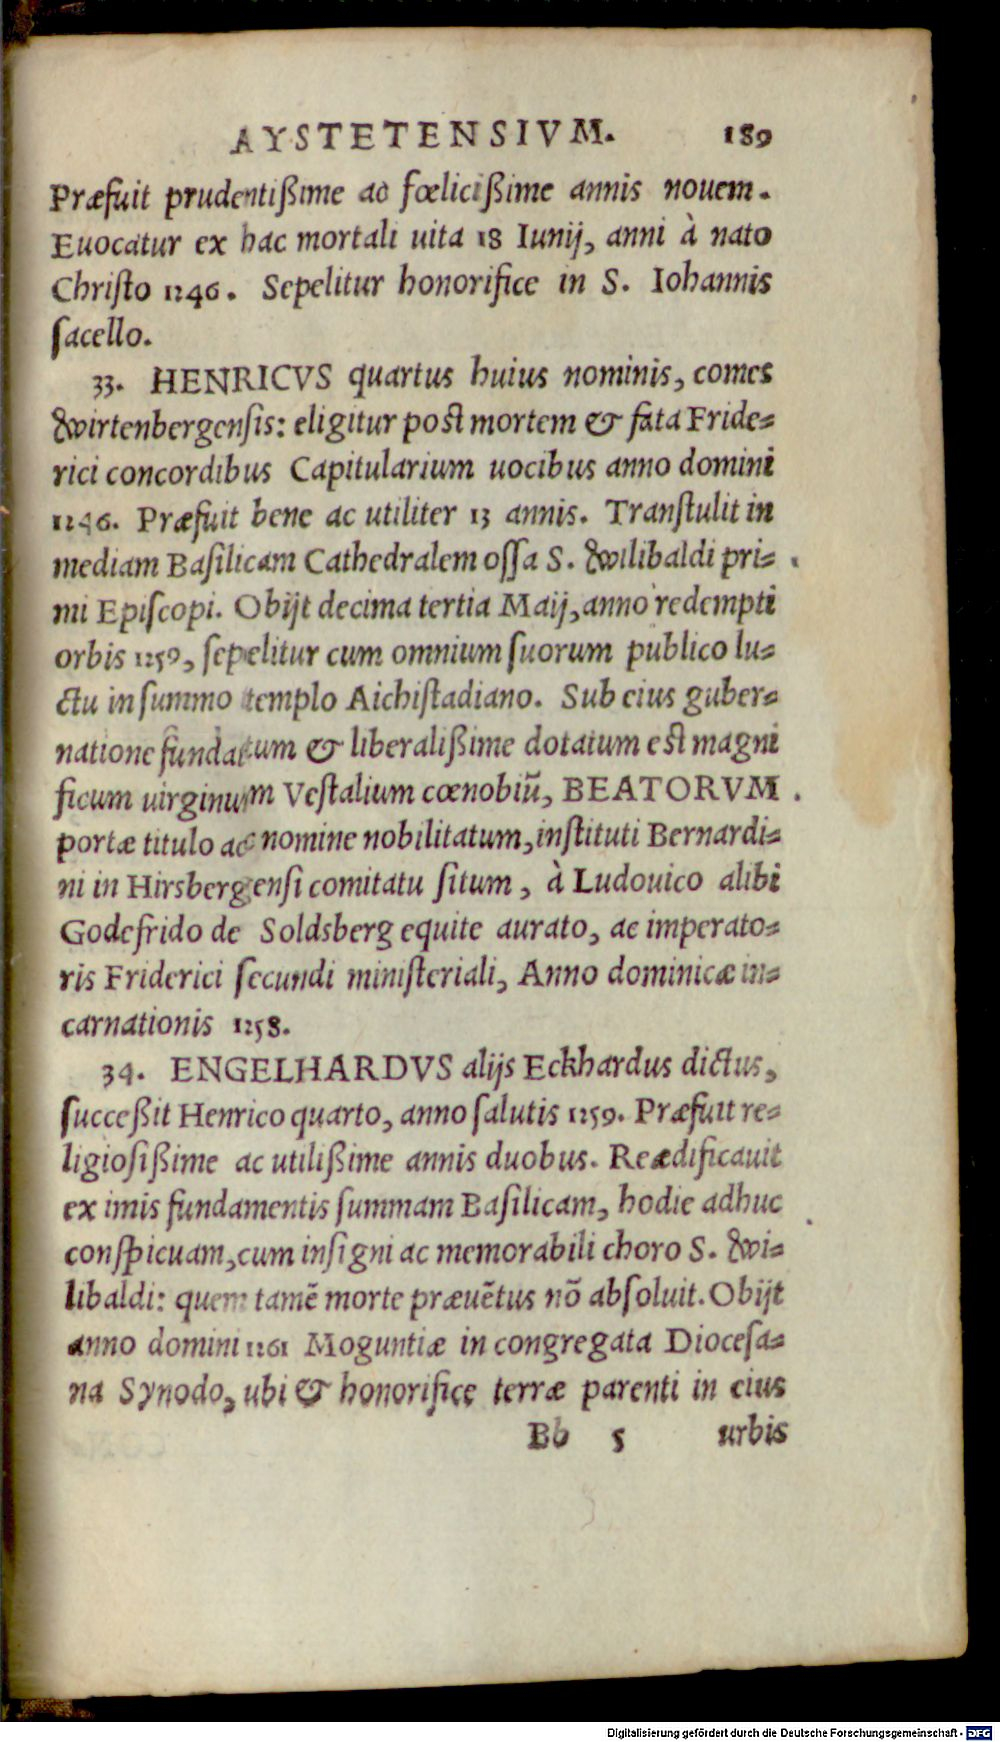 AYSTETENSIVM. 189
Præfuit prudentißime ac fœlicißime annis nouem.
Euocatur ex hac mortali uita 18 Iunij, anni à nato
Chriſto 1246. Sepelitur honorifice in S. Iohannis
ſacello.
33. HENRICVS quartus huius nominis, comes
Wirtenbergenſis: eligitur post mortem & fata Fride-
rici concordibus Capitularium uocibus anno domini
1246. Præfuit bene ac utiliter 13 annis. Tranſtulit in
mediam Baſilicam Cathedralem oſſa S. Wilibaldi pri-
mi Epiſcopi. Obijt decima tertia Maij, anno redempti
orbis 1259, ſepelitur cum omnium ſuorum publico lu-
ctu in ſummo templo Aichiſtadiano. Sub eius guber-
natione fundatum & liberalißime dotatum est magni
ficum uirginum Veſtalium cœnobiũ, BEATORVM
portæ titulo ac nomine nobilitatum, inſtituti Bernardi-
ni in Hirsbergenſi comitatu ſitum, à Ludouico alibi
Godefrido de Soldsberg equite aurato, ac imperato-
ris Friderici ſecundi miniſteriali, Anno dominicæ in-
carnationis 1258.
34. ENGELHARDVS alijs Eckhardus dictus,
ſucceßit Henrico quarto, anno ſalutis 1259. Præfuit re-
ligioſißime ac utilißime annis duobus. Reædificauit
ex imis fundamentis ſummam Baſilicam, hodie adhuc
conſpicuam, cum inſigni ac memorabili choro S. Wi-
libaldi: quem tamẽ morte præuẽtus nõ abſoluit. Obijt
anno domini 1261 Moguntiæ in congregata Dioceſa-
na Synodo, ubi & honorifice terræ parenti in eius
Bb 5 urbis
Digitalisierung gefördert durch die Deutsche Forschungsgemeinschaft - DFG